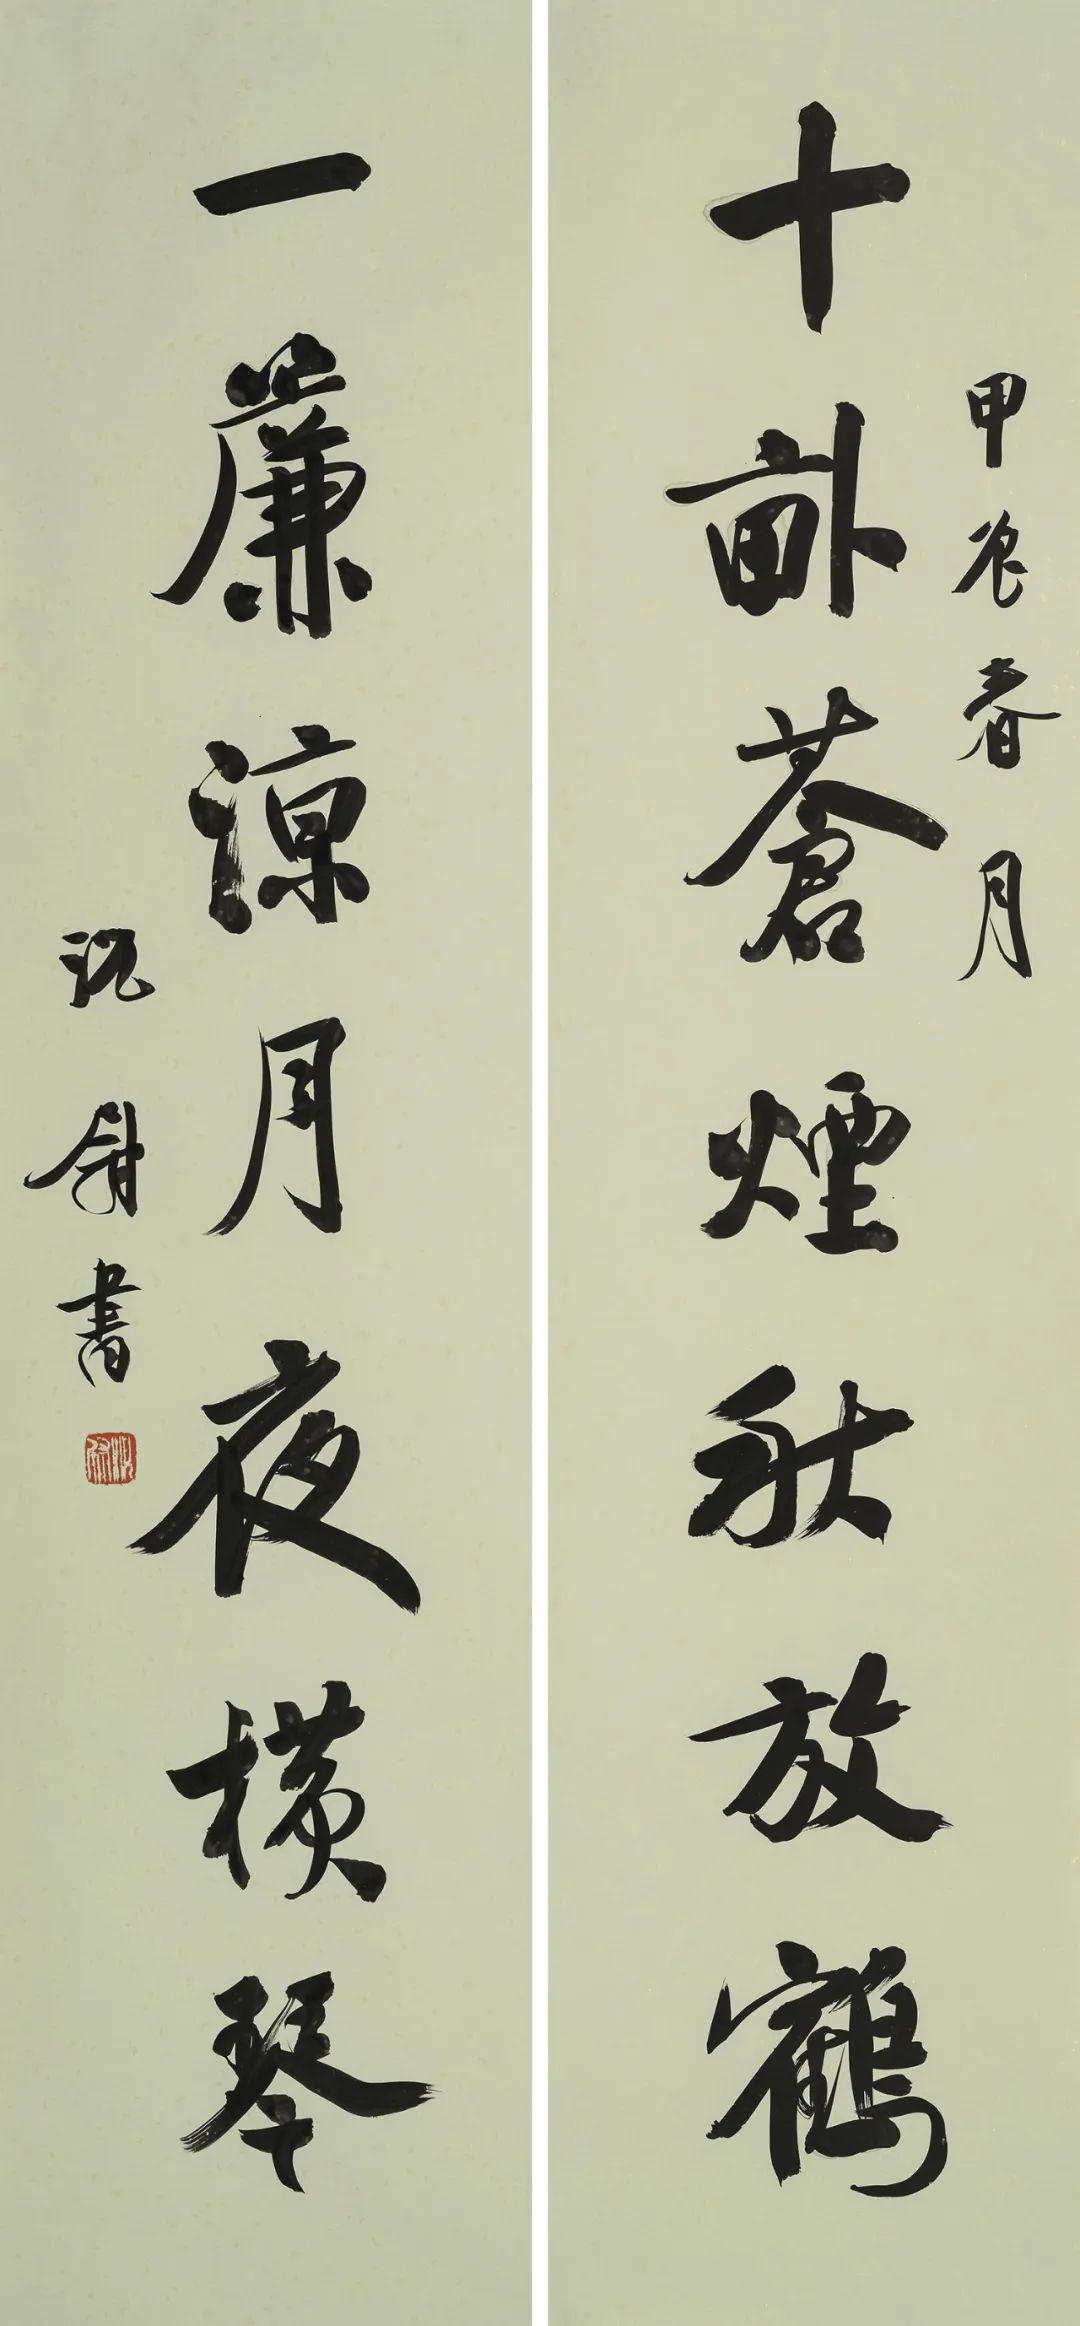 甲辰春月
十畝蒼煙秋放鶴
一簾涼月夜橫琴
沈 書